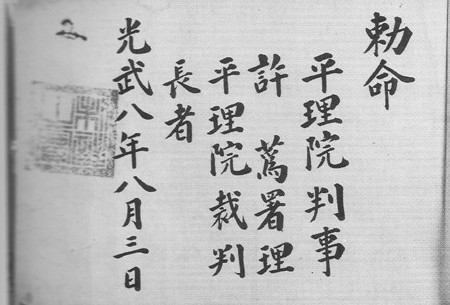 勅命
平理院判事
許 蔿署理
平理院裁判
長者
光武八年八月三日